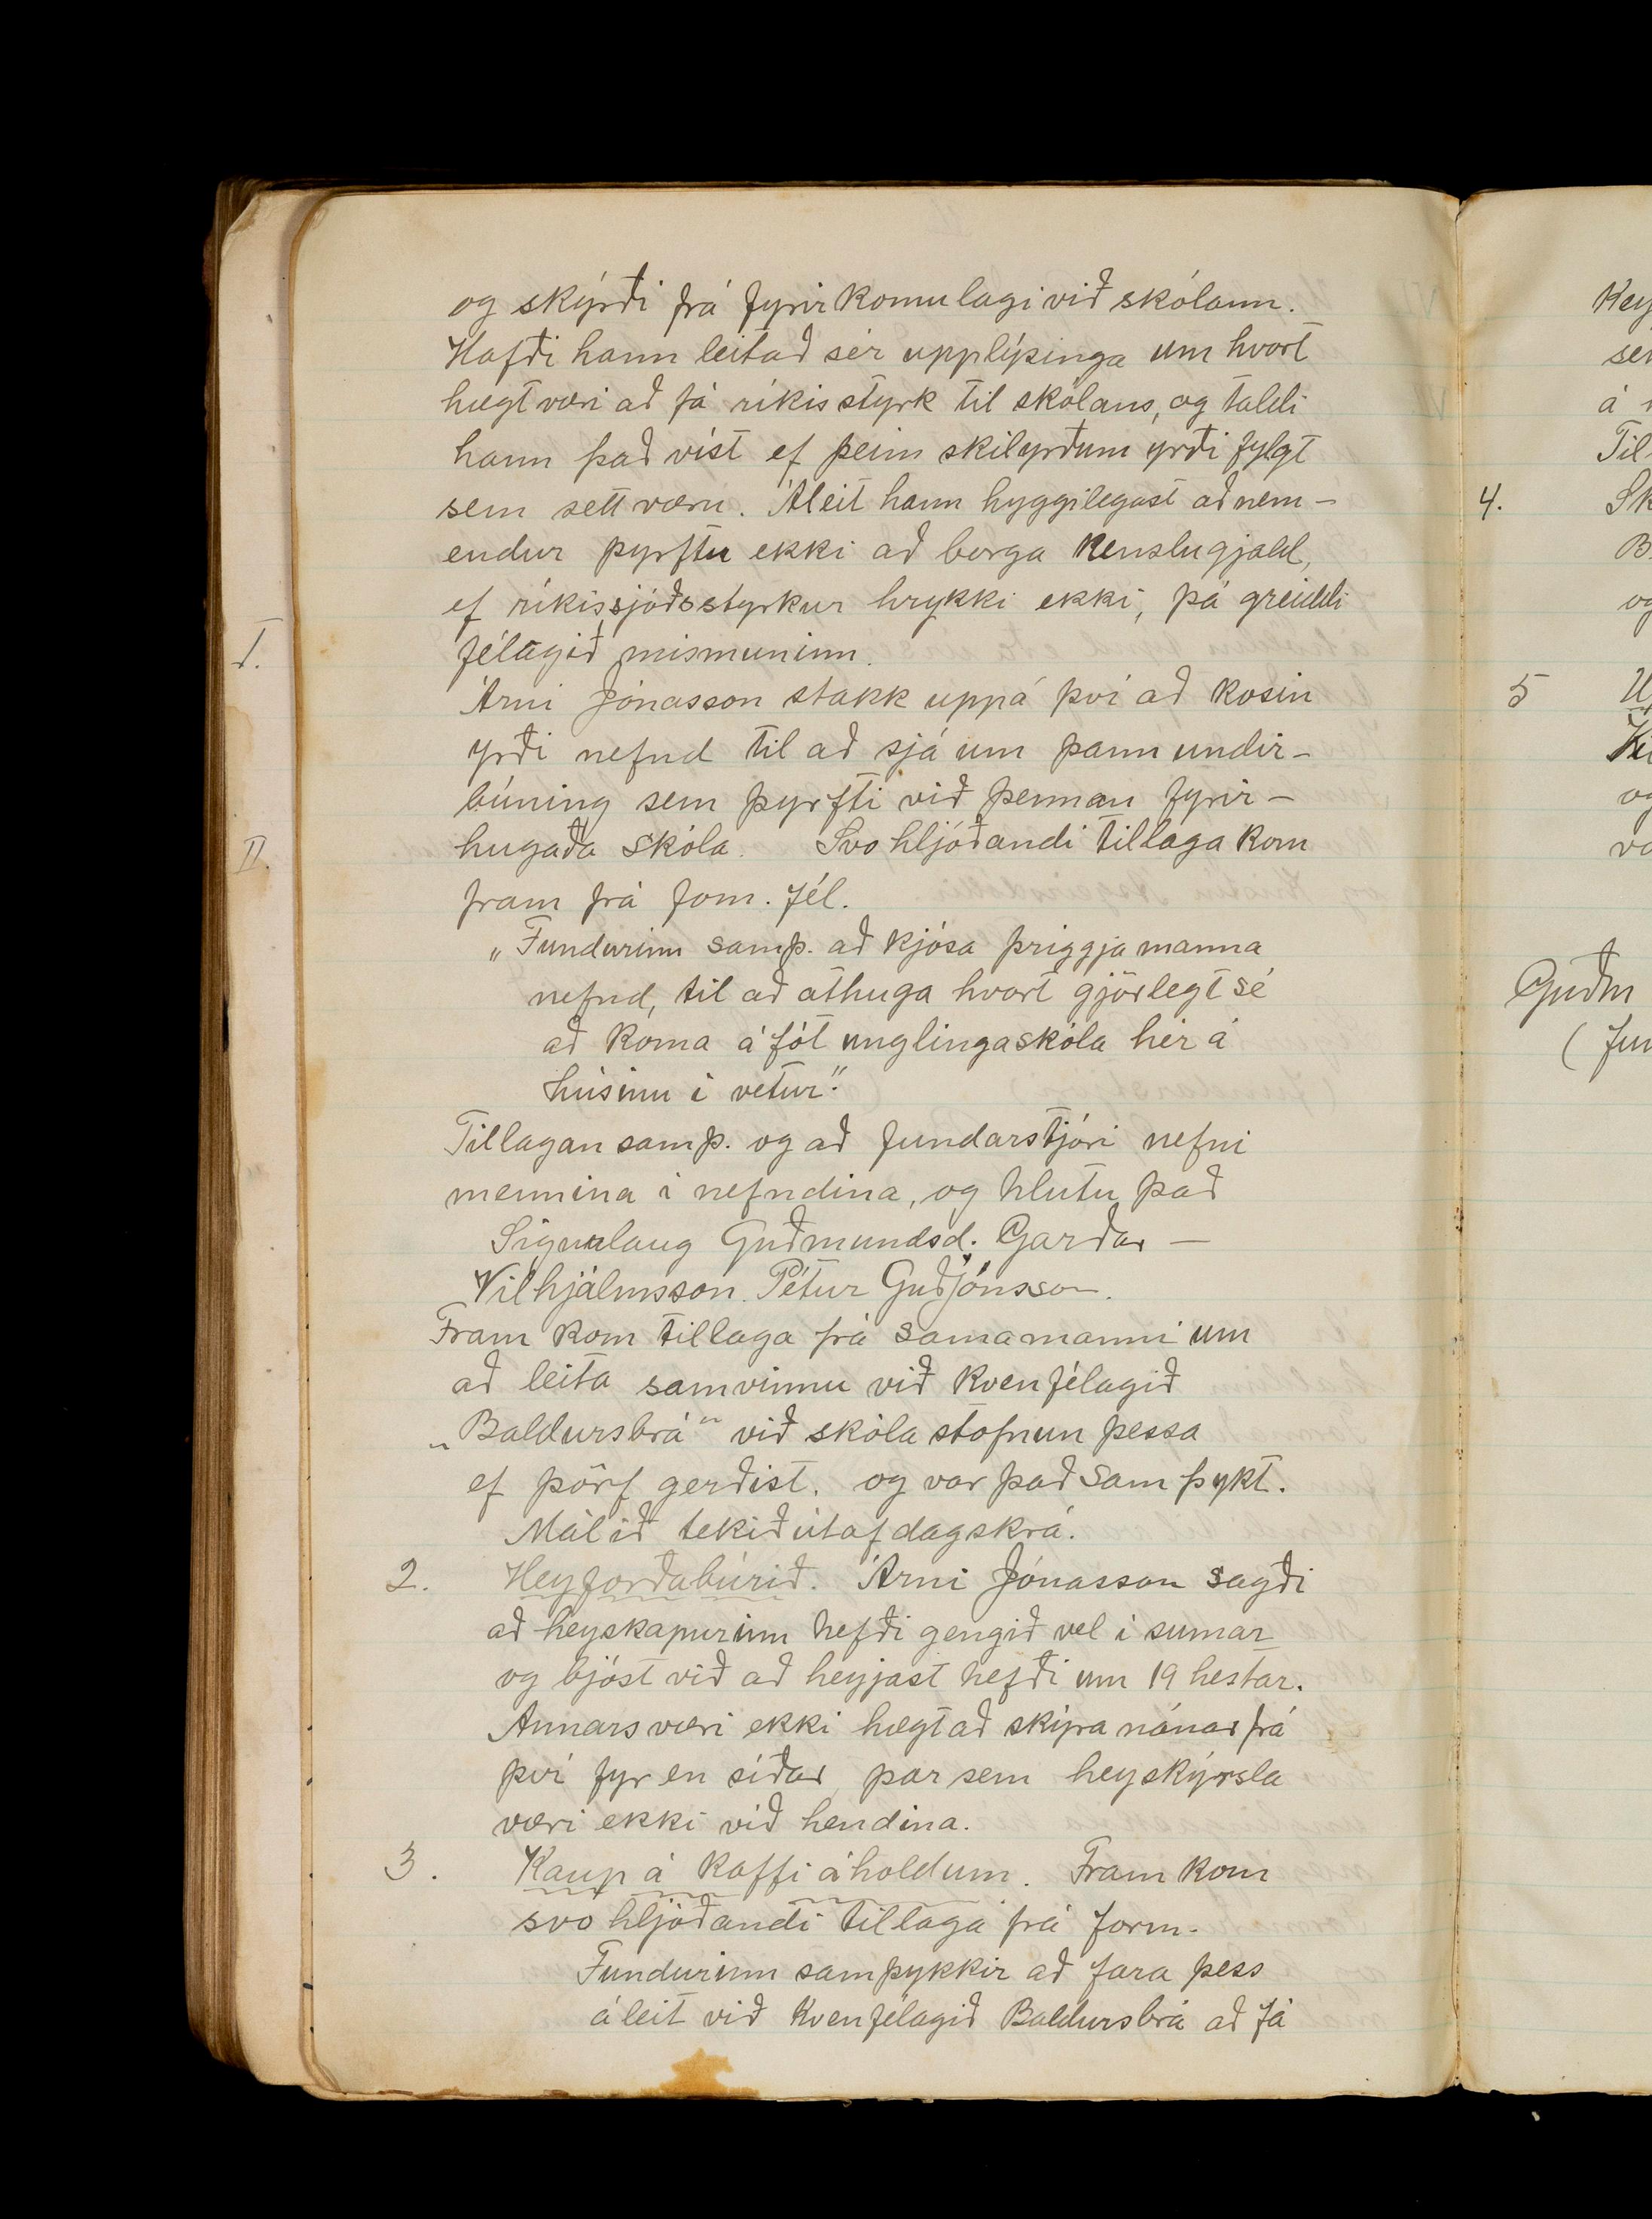 og skýrði frá fyrirkomulagi við skólann.
Hafði hann leitað sér upplýsinga um hvort
hægt væri að fá ríkisstyrk til skólans, og taldi
hann það víst ef þeim skilyrðum yrði fylgt
sem sett væru. Áleit hann hyggilegast að nem-
endur þyrftu ekki að borga kenslugjald,
ef ríkissjóðsstyrkur hrykki ekki, þá greiddi
félagið mismuninn.
Árni Jónasson stakk uppá því að kosin
yrði nefnd til að sjá um þann undir-
búning sem þyrfti við þennan fyrir-
hugaða skóla. Svohljóðandi tillaga kom
fram frá fom. fél.
„Fundurinn samþ. að kjósa þriggja manna
nefnd, til að athuga hvort gjörlegt sé
að koma á fót unglingaskóla hér á
húsinu í vetur".
Tillagan samþ. og að fundarstjóri nefni
mennina í nefndina, og hlutu það
Sigurlaug Guðmundsd. Garðar -
Vilhjálmsson. Pétur Guðjónsson.
Fram kom tillaga frá sama manni um
að leita samvinnu við kvenfélagið
„Baldursbrá" við skóla stofnun þessa
ef þörf gerðist. og var það samþykt.
Málið tekið út af dagskrá.
2. Heyforðabúrið. Árni Jónasson sagði
að heyskapurinn hefði gengið vel í sumar
og bjóst við að heyjast hefði um 19 hestar.
Annars væri ekki hægt að skýra nánar frá
því fyr en síðar þar sem heyskýrsla
væri ekki við hendina.
3. Kaup á kaffiáholdum. Fram kom
svohljóðandi tillaga frá form.
Fundurinn samþykkir að fara þess
á leit við kvenfélagið Baldursbrá að fá
I.
II.
4.
5
Guðm